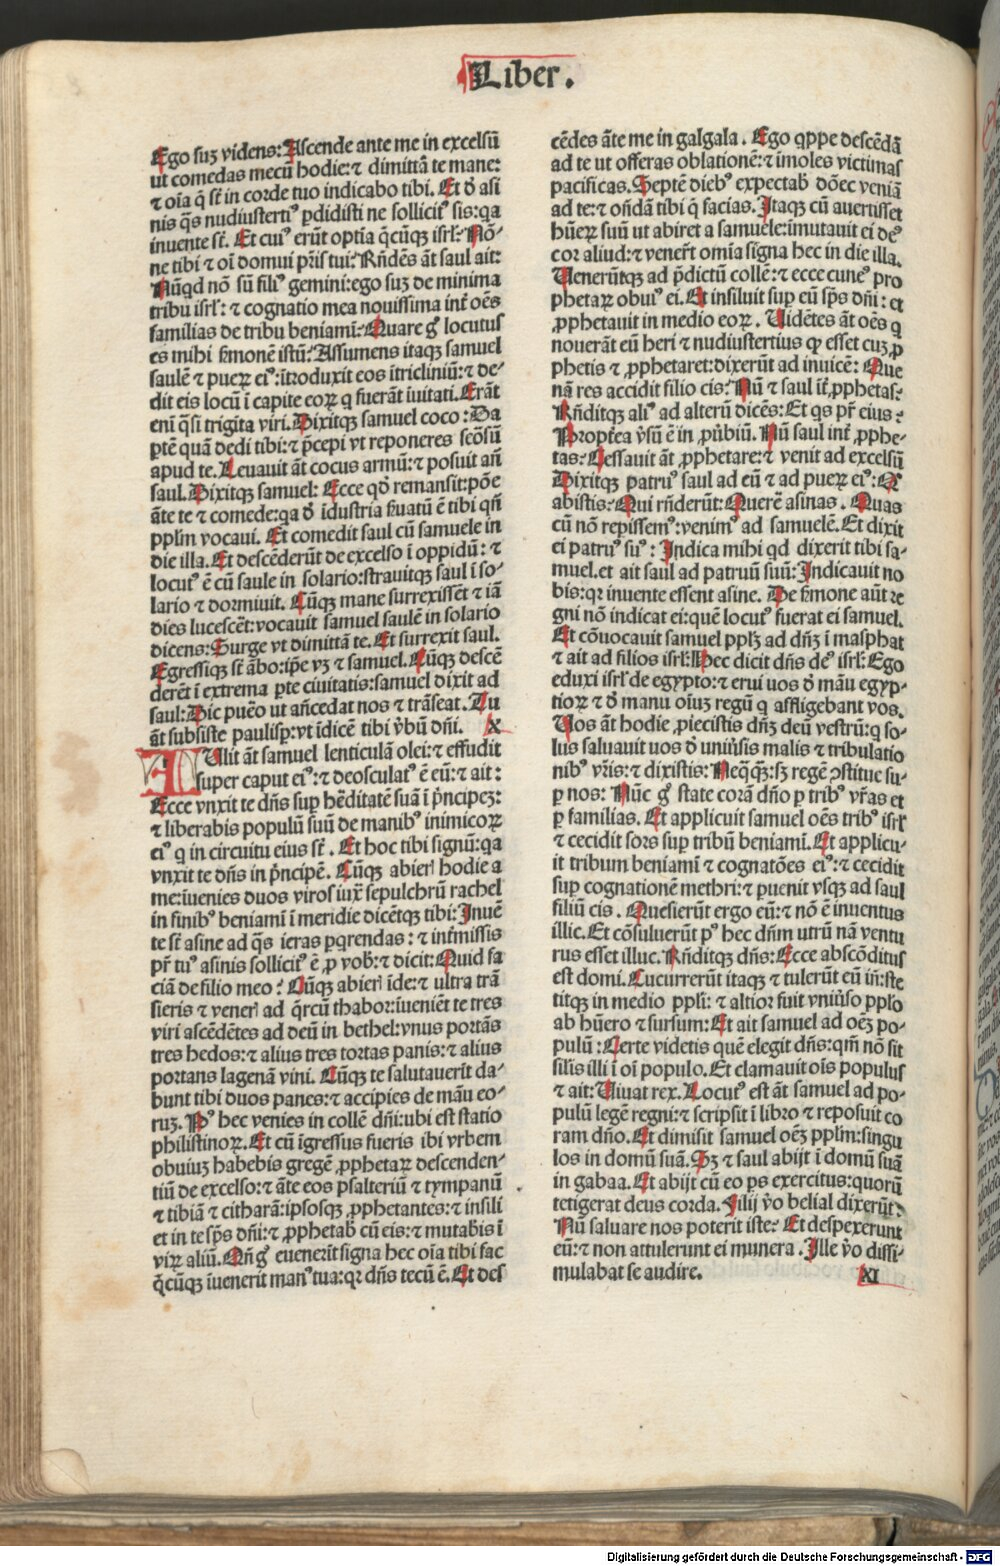 Liber.
Ego suꝫ videns: Ascende ante me in excelsū
ut comedas mecū hodie: ⁊ dimittā te mane:
⁊ oīa q̄ st̄ in corde tuo indicabo tibi. Et ð asi
nis q̄s nudiusterti⁹ ꝑdidisti ne sollicit⁹ sis: qa
inuente st̄. Et cui⁹ erūt optīa q̄cūqꝫ isrl̓? Nō-
ne tibi ⁊ oī domui pr̄is tui? Rn̄dēs āt saul ait:
Nūqd nō sū fili⁹ gemini: ego suꝫ de minima
tribu isrl̓: ⁊ cognatio mea nouissima int̓ oēs
familias de tribu beniamī? Quare g̊ locutus
es mihi ẜmonē istū? Assumens itaqꝫ samuel
saulē ⁊ pueꝝ ei⁹: ītroduxit eos ītricliniū: ⁊ de-
dit eis locū ī capite eoꝝ q fuerāt īuitati. Erāt
enī q̄si trigita viri. Dixitqꝫ samuel coco: Da
ꝑtē quā dedi tibi: ⁊ p̄cepi vt reponeres seōsū
apud te. Leuauit āt cocus armū: ⁊ posuit añ
saul. Dixitqꝫ samuel: Ecce qð remansit: pōe
āte te ⁊ comede: qa ð īdustria ẜuatū ē tibi qn̄
pplm̄ vocaui. Et comedit saul cū samuele in
die illa. Et descēderūt de excelso ī oppidū: ⁊
locut⁹ ē cū saule in solario: strauitqꝫ saul ī so-
lario ⁊ dormiuit. Cūqꝫ mane surrexissēt ⁊ iā
dies lucescēt: vocauit samuel saulē in solario
dicens: Surge vt dimittā te. Et surrexit saul.
Egressiqꝫ st̄ ābo: ip̄e vꝫ ⁊ samuel. Cūqꝫ descē
derēt ī extrema ꝑte ciuitatis: samuel dixit ad
saul: Dic pueō ut añcedat nos ⁊ trāseat. Tu
āt subsiste paulisꝑ: vt īdicē tibi v̓bū dn̄i. X
TUlit āt samuel lenticulā olei: ⁊ effudit
super caput ei⁹: ⁊ deosculat⁹ ē eū: ⁊ ait:
Ecce vnxit te dn̄s sup hēditatē suā ī p̄ncipeꝫ:
⁊ liberabis populū suū de manib⁹ inimicoꝝ
ei⁹ q in circuitu eius st̄. Et hoc tibi signū: qa
vnxit te dn̄s in p̄ncipē. Cūqꝫ abier̄ hodie a
me: īuenies duos viros iux̄ sepulchrū rachel
in finib⁹ beniamī ī meridie dicētqꝫ tibi: Inuē
te st̄ asine ad q̄s ieras ꝑqrendas: ⁊ int̓missis
pr̄ tu⁹ asinis sollicit⁹ ē ꝓ vob̓: ⁊ dicit: Quid fa
ciā de filio meo? Cūqꝫ abier̄ īde: ⁊ ultra trā
sieris ⁊ vener̄ ad q̄rcū thabor: īueniēt te tres
viri ascēdētes ad deū in bethel: vnus portās
tres hedos: ⁊ alius tres tortas panis: ⁊ alius
portans lagenā vini. Cūqꝫ te salutauerīt da-
bunt tibi duos panes: ⁊ accipies de māu eo-
ruꝫ. P⁹ hec venies in collē dn̄i: ubi est statio
philistinoꝝ. Et cū īgressus fueris ibi vrbem
obuiuꝫ habebis gregē ꝓphetaꝝ descenden-
tiū de excelso: ⁊ āte eos psalteriū ⁊ tympanū
⁊ tibiā ⁊ citharā: ipsosqꝫ ꝓphetantes: ⁊ insili
et in te sp̄s dn̄i: ⁊ ꝓphetab̓ cū eis: ⁊ mutabis ī
viꝝ aliū. Qn̄ g̊ euenerīt signa hec oīa tibi fac
q̄cūqꝫ īuenerit man⁹ tua: qꝛ dn̄s tecū ē. Et des
cēdes āte me in galgala. Ego qppe descēdā
ad te ut offeras oblationē: ⁊ īmoles victimas
pacificas. Septē dieb⁹ expectab̓ dōec veniā
ad te: ⁊ on̄dā tibi q̄ facias. Itaqꝫ cū auertisset
hūeꝝ suū ut abiret a samuele: īmutauit ei de⁹
cor aliud: ⁊ vener̄t omīa signa hec in die illa.
Venerūtqꝫ ad p̄dictū collē: ⁊ ecce cune⁹ pro
phetaꝝ obui⁹ ei. Et insiluit suꝑ eū sp̄s dn̄i: et
ꝓphetauit in medio eoꝝ. Uidētes āt oēs q
nouerāt eū heri ⁊ nudiustertius ꝙ esset cuꝫ ꝓ
phetis ⁊ ꝓphetaret: dixerūt ad inuicē: Que
nā res accidit filio cis? Nū ⁊ saul īt̓ ꝓphetas?
Rn̄ditqꝫ ali⁹ ad alterū dicēs: Et qs pr̄ eius?
Propt̓ea v̓sū ē in ꝓu̓biū. Nū saul int̓ ꝓphe-
tas? Cessauit āt ꝓphetare: ⁊ venit ad excelsū
Dixitqꝫ patru⁹ saul ad eū ⁊ ad pueꝝ ei⁹: Q̊
abistis? Qui rn̄derūt: Querē asinas. Quas
cū nō repissem⁹: venim⁹ ad samuelē. Et dixit
ei patru⁹ su⁹: Indica mihi qd dixerit tibi sa-
muel. et ait saul ad patruū suū: Indicauit no
bis: qꝛ inuente essent asine. De ẜmone aūt re
gni nō indicat ei: quē locut⁹ fuerat ei samuel.
Et cōuocauit samuel pplꝫ ad dn̄ꝫ ī masphat
⁊ ait ad filios isrl̓: Hec dicit dn̄s de⁹ isrl̓: Ego
eduxi isrl̓ de egypto: ⁊ erui uos ð māu egyp-
tioꝝ ⁊ ð manu oīuꝫ regū q affligebant vos.
Vos āt hodie ꝓiecistis dn̄ꝫ deū vestrū: q so-
lus saluauit uos ð uniu̓sis malis ⁊ tribulatio
nib⁹ vr̄is: ⁊ dixistis: Neqq̄ꝫ: sꝫ regē ꝯstitue su-
ꝑ nos: Nūc g̊ state corā dn̄o ꝑ trib⁹ vr̄as et
ꝑ familias. Et applicuit samuel oēs trib⁹ isrl̓
⁊ cecidit sors suꝑ tribū beniamī. Et applicu-
it tribum beniamī ⁊ cognatōes ei⁹: ⁊ cecidit
suꝑ cognationē methri: ⁊ puenit vsqꝫ ad saul
filiū cis. Quesierūt ergo eū: ⁊ nō ē inuentus
illic. Et cōsuluerūt p⁹ hec dn̄m utrū nā ventu
rus esset illuc. Rn̄ditqꝫ dn̄s: Ecce abscōditus
est domi. Cucurrerūt itaqꝫ ⁊ tulerūt eū īn̄: ste
titqꝫ in medio ppli: ⁊ altior fuit vniu̓so pplo
ab hūero ⁊ sursum: Et ait samuel ad oēꝫ po-
pulū: Certe videtis quē elegit dn̄s: qm̄ nō sit
sil̓is illi ī oī populo. Et clamauit oīs populus
⁊ ait: Viuat rex. Locut⁹ est āt samuel ad po-
pulū legē regni: ⁊ scripsit ī libro ⁊ reposuit co
ram dn̄o. Et dimisit samuel oēꝫ pplm̄: singu
los in domū suā. Sꝫ ⁊ saul abijt ī domū suā
in gabaa. Et abijt cū eo ꝑs exercitus: quorū
tetigerat deus corda. Filij v̊o belial dixerūt:
Nū saluare nos poterit iste? Et despexerunt
eū: ⁊ non attulerunt ei munera. Ille v̊o dissi-
mulabat se audire. XI
Digitalisierung gefördert durch die Deutsche Forschungsgemeinschaft - DFG